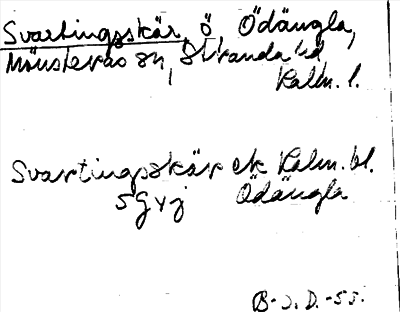 Svartingsskär, ö, Ödängla,
Mönsterås sn, Stranda hd
Kalm. l.
Svartingsskär ek Kalm. bl.
5 G v j Ödängla
B-J. D. -55.